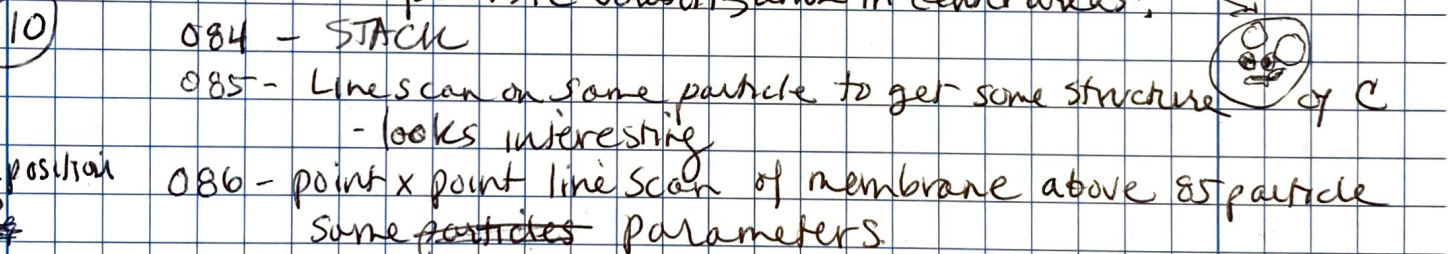 10 084 - STACK
085 - Line scan on same particle to get some structure of C
- looks interesting
position 086 - point x point line scan of membrane above 85 particle
same particles parameters.